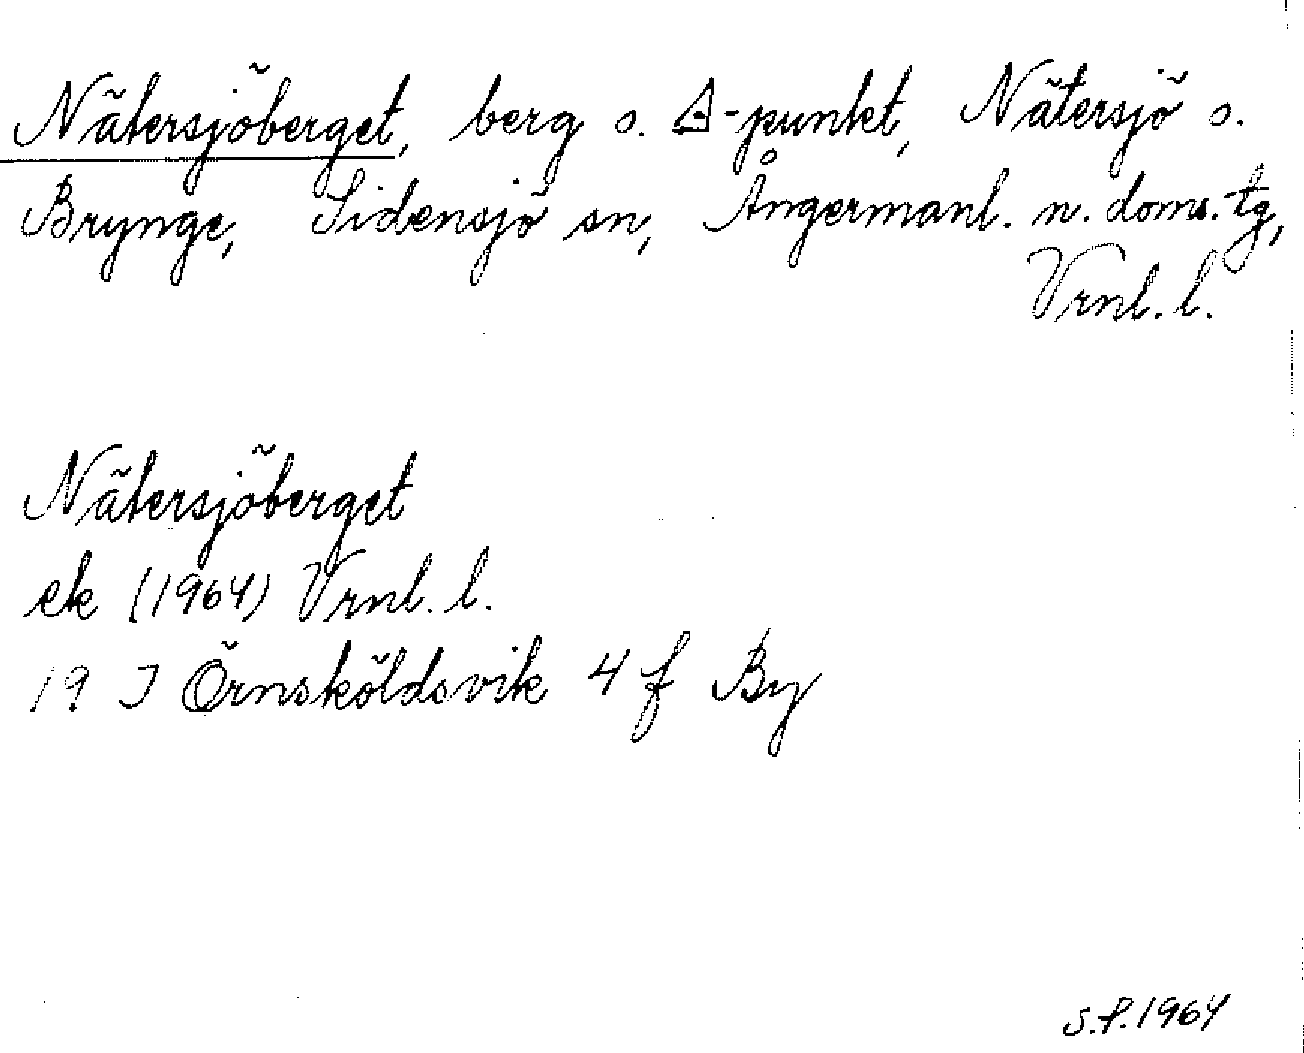 Nätersjöberget, berg o. △-punkt, Nätersjö o.
Brynge, Sidensjö sn, Ångermanl. n. doms. tg,
Vrnl. l.
Nätersjöberget
ek (1964) Vrnl. l.
19 J Örnsköldsvik 4 f By
S.P. 1964